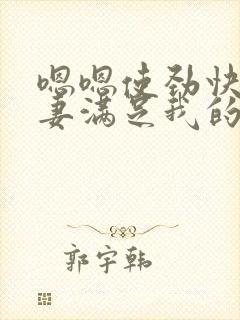 嗯嗯使劲快
妻满足我的
郭宇韩